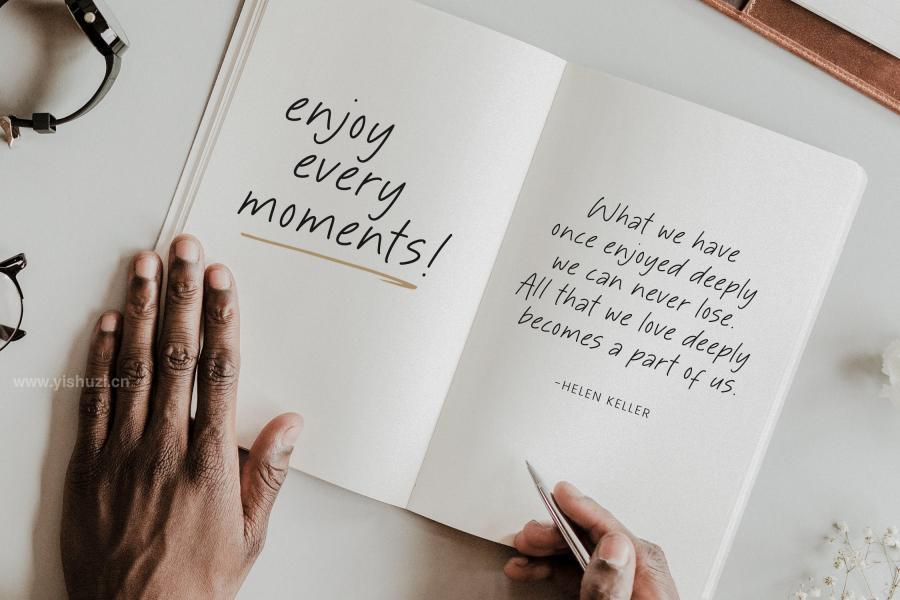 enjoy
every
moments!
What we have
once enjoyed deeply
we can never lose.
All that we love deeply
becomes a part of us.
-HELEN KELLER
www.yishuzi.cn